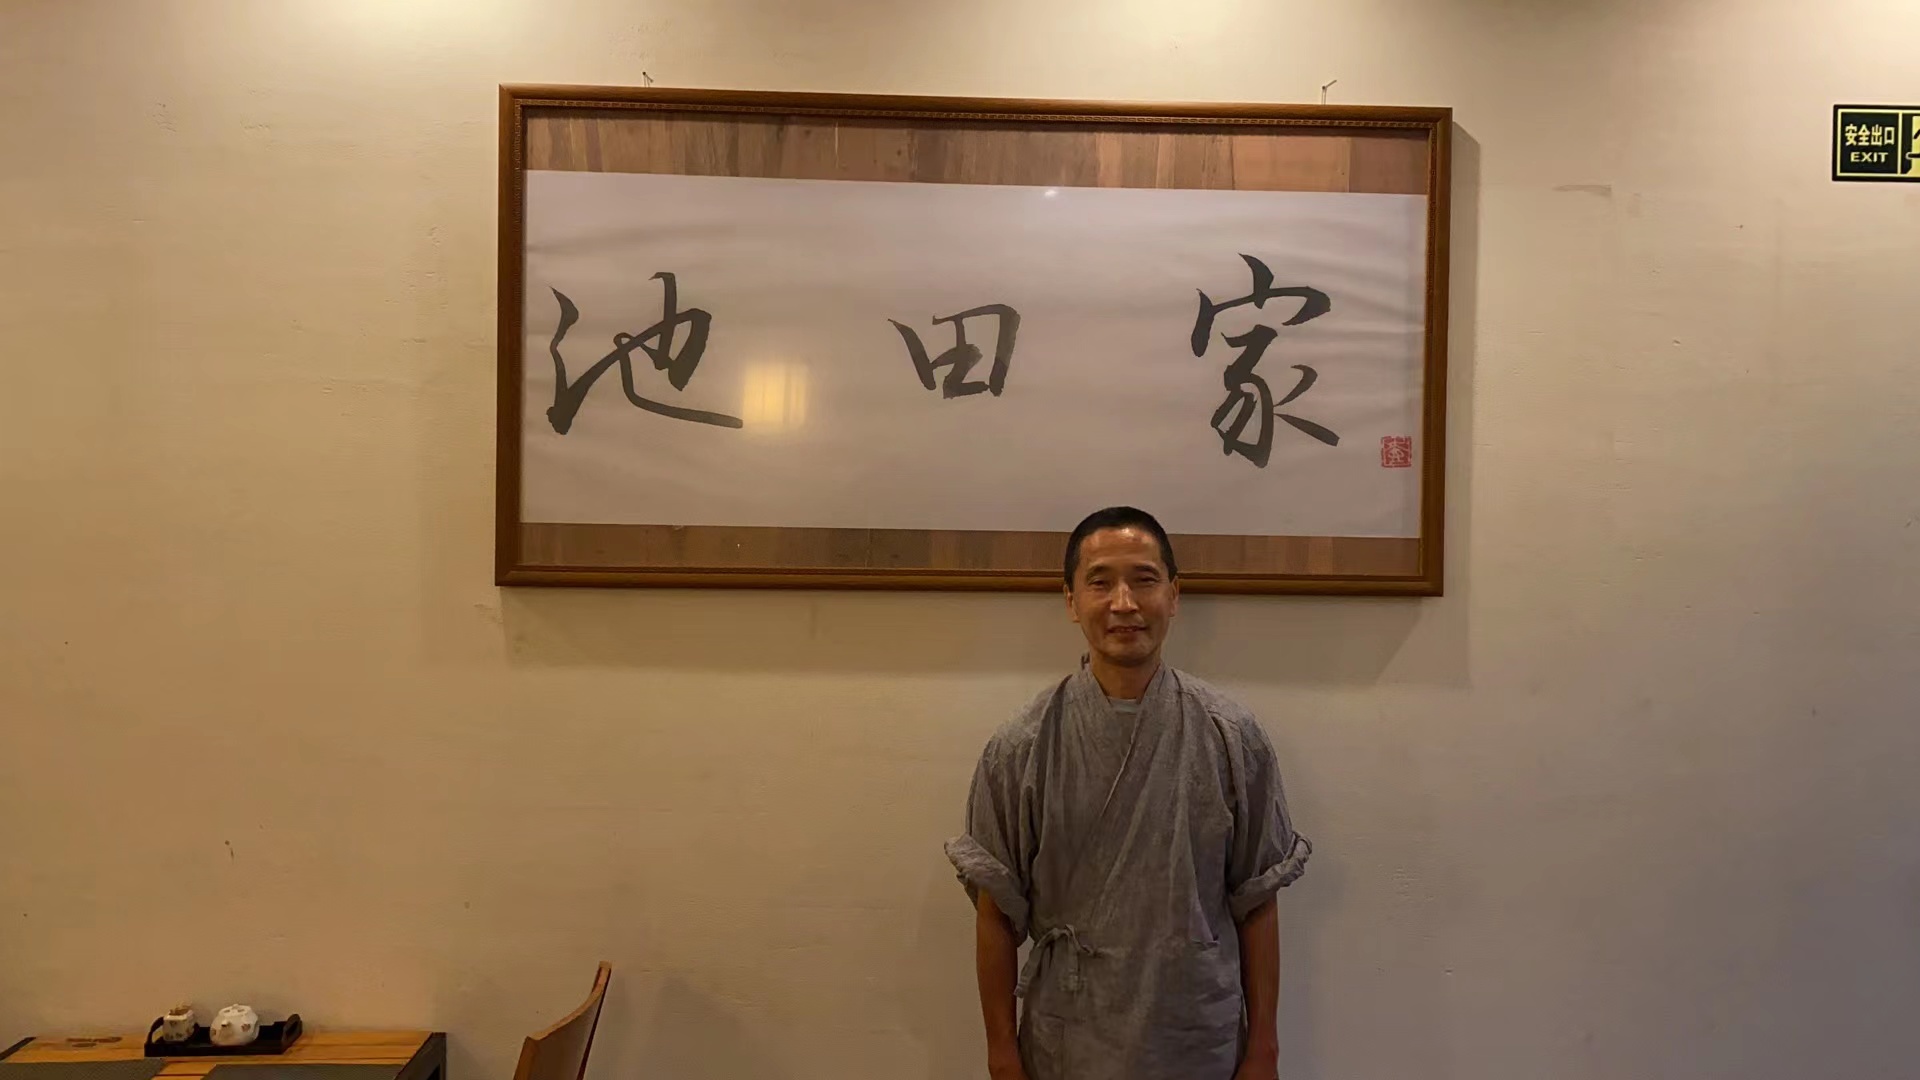 池田家
安全出口
EXIT